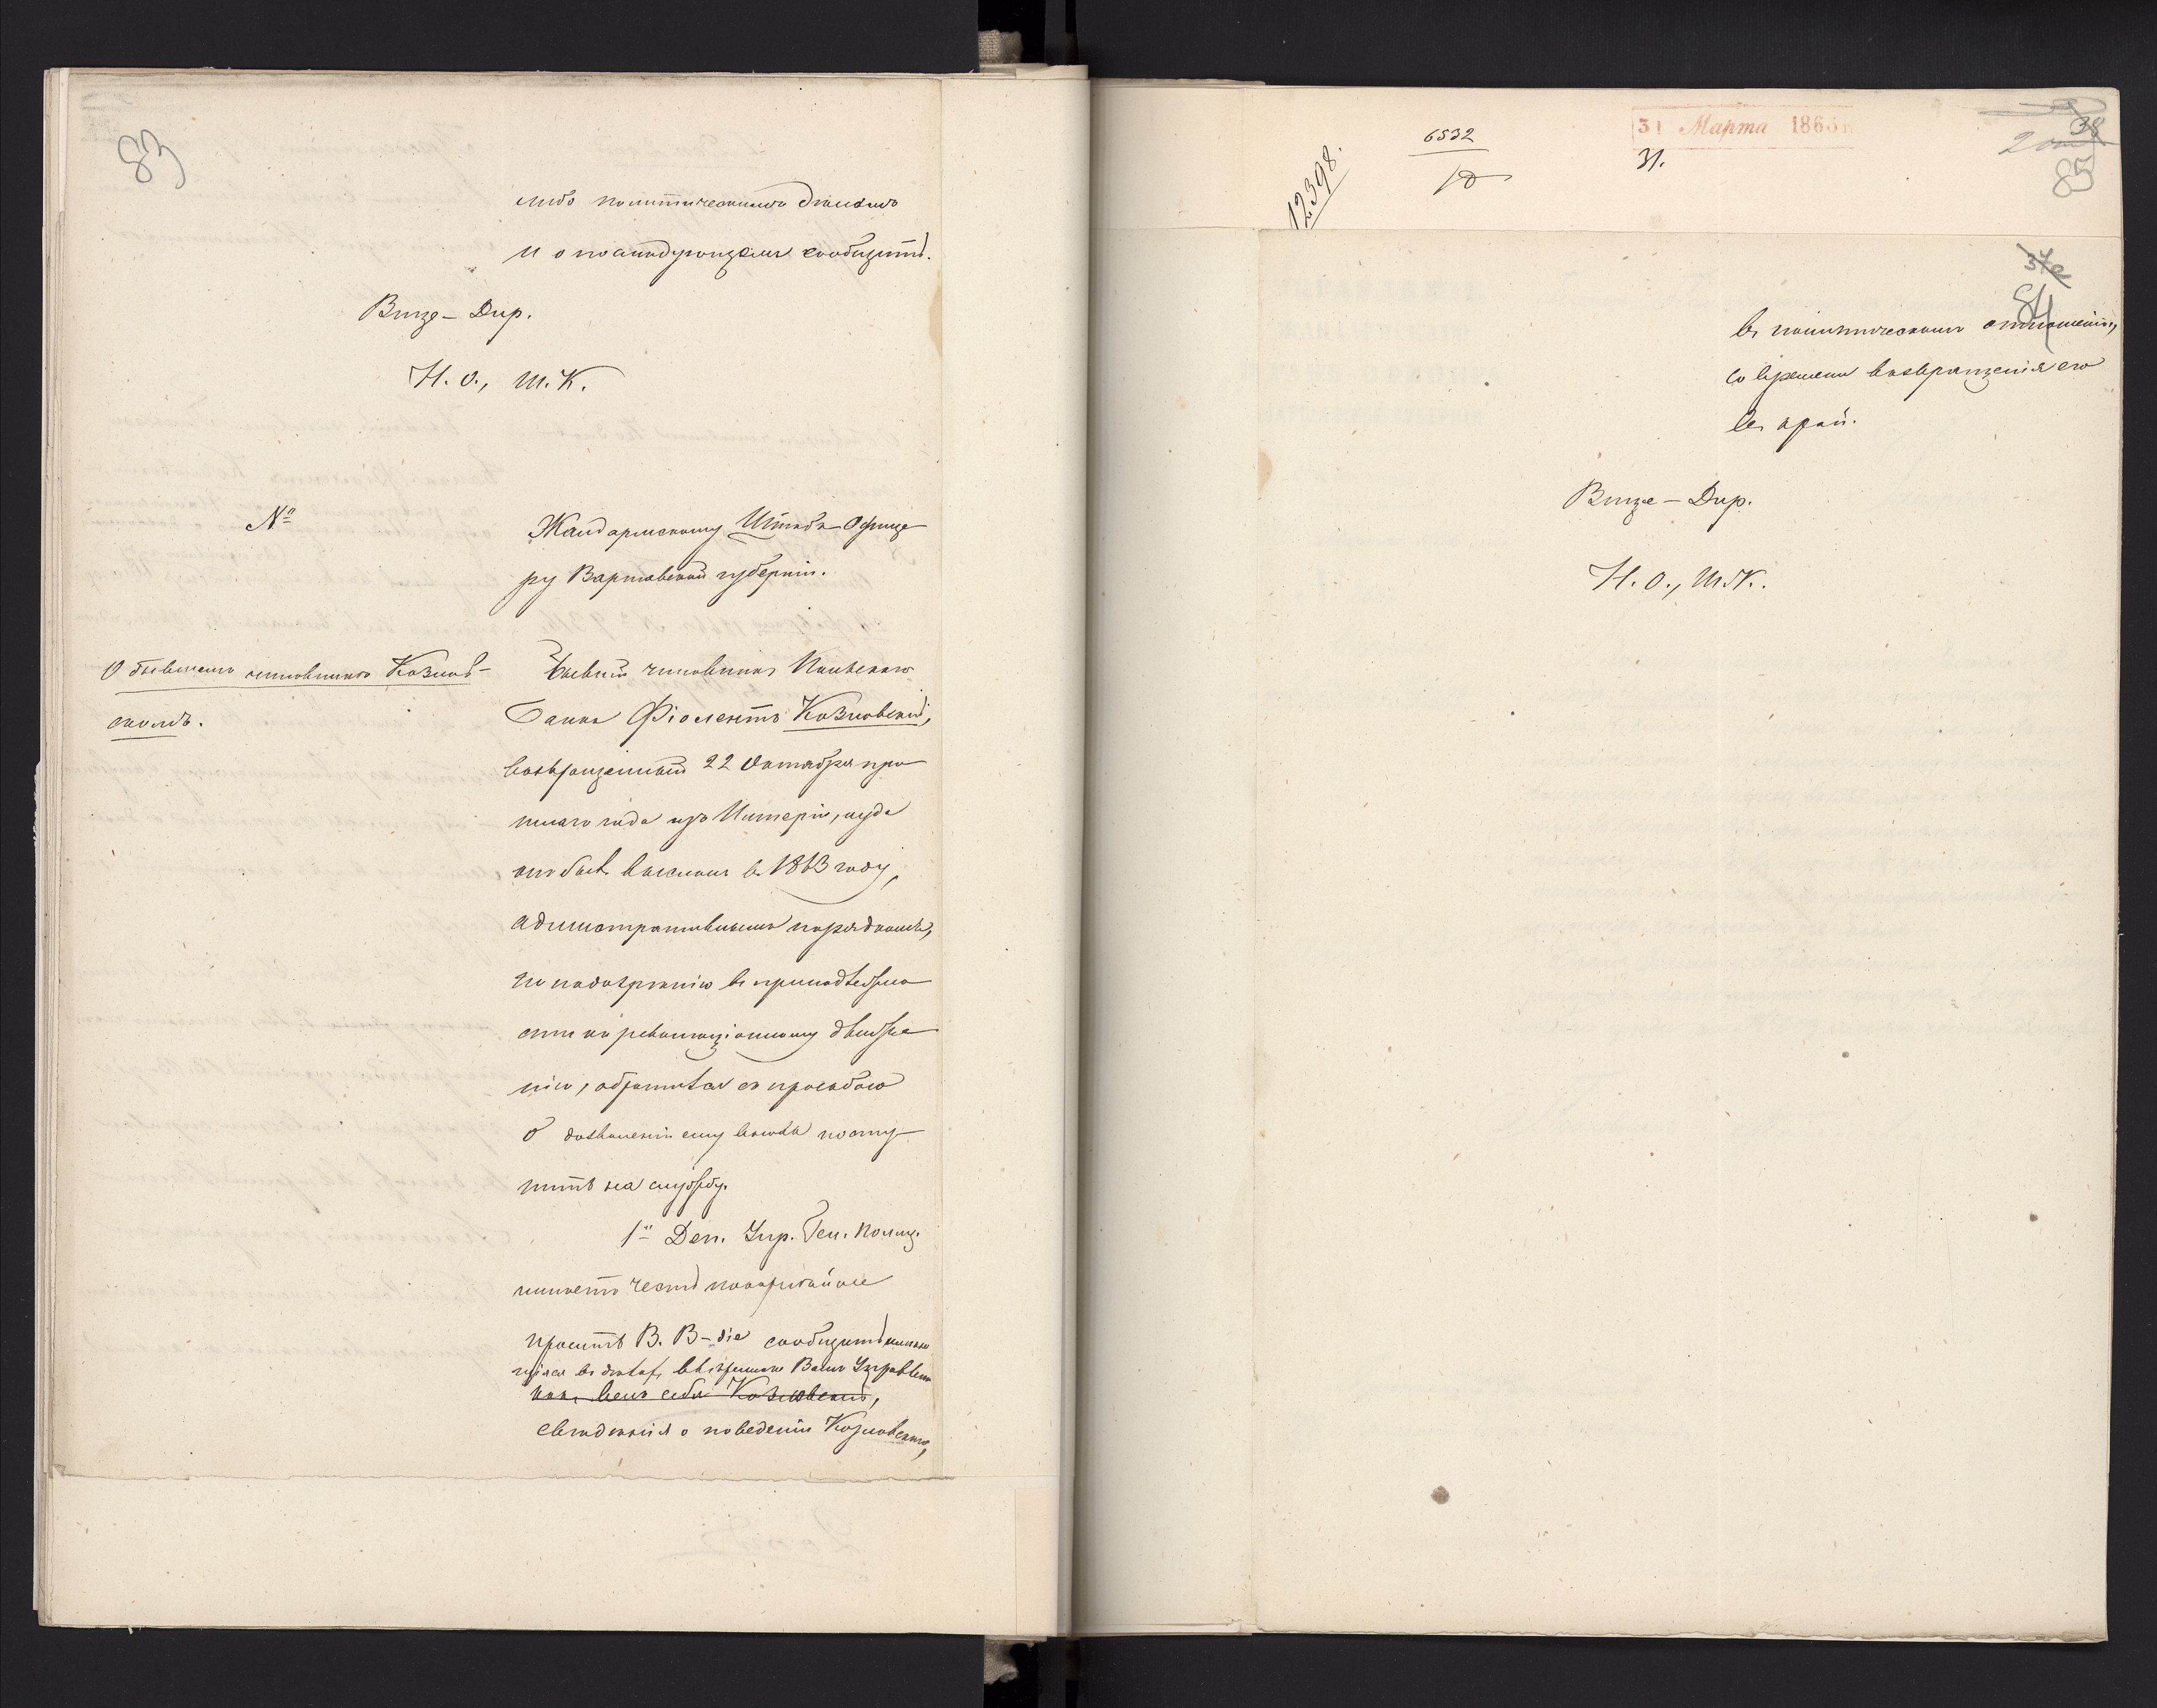 83
либо политическимъ дѣламъ
и о послѣдующемъ сообщить.
Вице-Дир.
Н. О., Ш. К.
№
Жандармскому Штабъ-Офице
ру Варшавской губерніи.
О бывшемъ чиновникѣ Козлов-
скомъ.
Бывшій чиновникъ Польскаго
Банка Фіолентъ Козловскій,
возвращенный 22 Октября про
шлаго года изъ Имперіи, куда
онъ былъ высланъ въ 1863 году,
административнымъ порядкомъ,
по подозрѣнію въ принадлежно
сти къ революціонному движе
нію, обратился съ просьбою
о дозволеніи ему вновь посту-
пить на службу.
1й Деп. Упр. Ген. Полиц.
имѣетъ честь покорнѣйше
просить В. В-діе сообщить имѣю
щіяся въ дѣлахъ ввѣреннаго Вамъ Управленія
какъ велъ себя Козловскій,
свѣдѣнія о поведеніи Козловскаго,
6532
12398.
31 Марта 186
31.
38
85
37
84
въ политическомъ отношеніи,
со времени возвращенія его
въ край.
Вице-Дир.
Н. О., Ш. К.